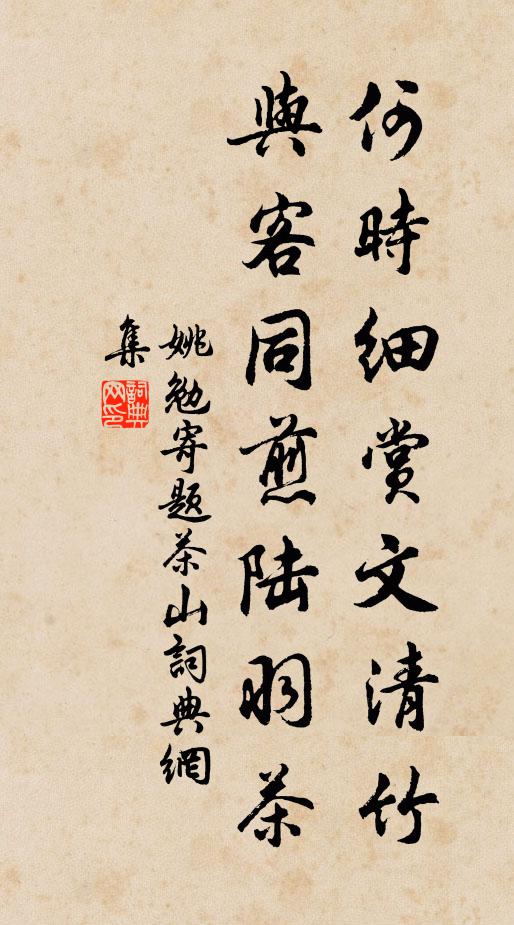 何時細賞文清竹
與客同煎陆羽茶
姚勉寄題茶山詞典網
集
詞典
网印